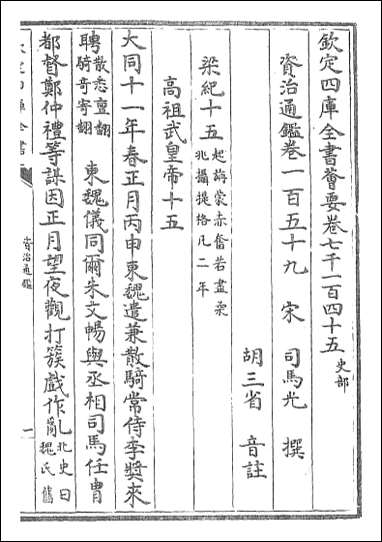 欽定四庫全書薈要卷七千一百四十五 史部
資治通鑑卷一百五十九 宋 司馬光 撰
胡三省 音註
梁紀十五 起旃蒙赤奮若盡柔兆攝提格凡二年
高祖武皇帝十五
大同十一年春正月丙申東魏遣兼散騎常侍李獎來
聘 散悉亶翻騎奇寄翻 東魏儀同爾朱文暢與丞相司馬任胄
都督鄭仲禮等謀因正月望夜觀打簇戲作亂 北史曰魏氏舊
資治通鑑
一